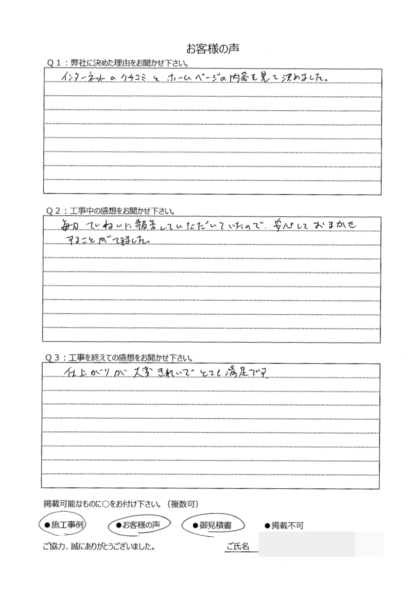 お客様の声
Q1：弊社に決めた理由をお聞かせ下さい。
インターネットのクチコミとホームページの内容を見て決めました。
Q2：工事中の感想をお聞かせ下さい。
毎日ていねいに報告していただいていたので、安心しておまかせ
することができました。
Q3：工事を終えての感想をお聞かせ下さい。
仕上がりが大変きれいでとても満足です
掲載可能なものに○をお付け下さい。（複数可）
●施工事例 ●お客様の声 ●御見積書 ●掲載不可
ご協力、誠にありがとうございました。 ご氏名